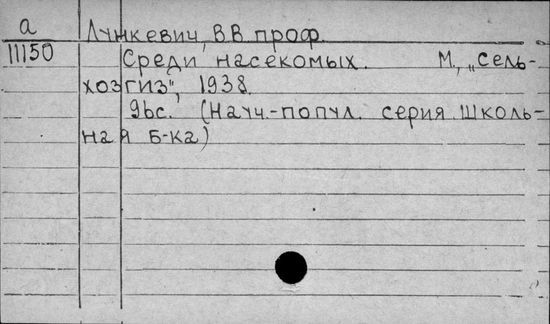 а Лункевич, В В проф.
11150 Среди насекомых. М, „Сель-
хозгиз", 1938.
96с. (Науч.-попул. серия Школь-
ная б-ка)